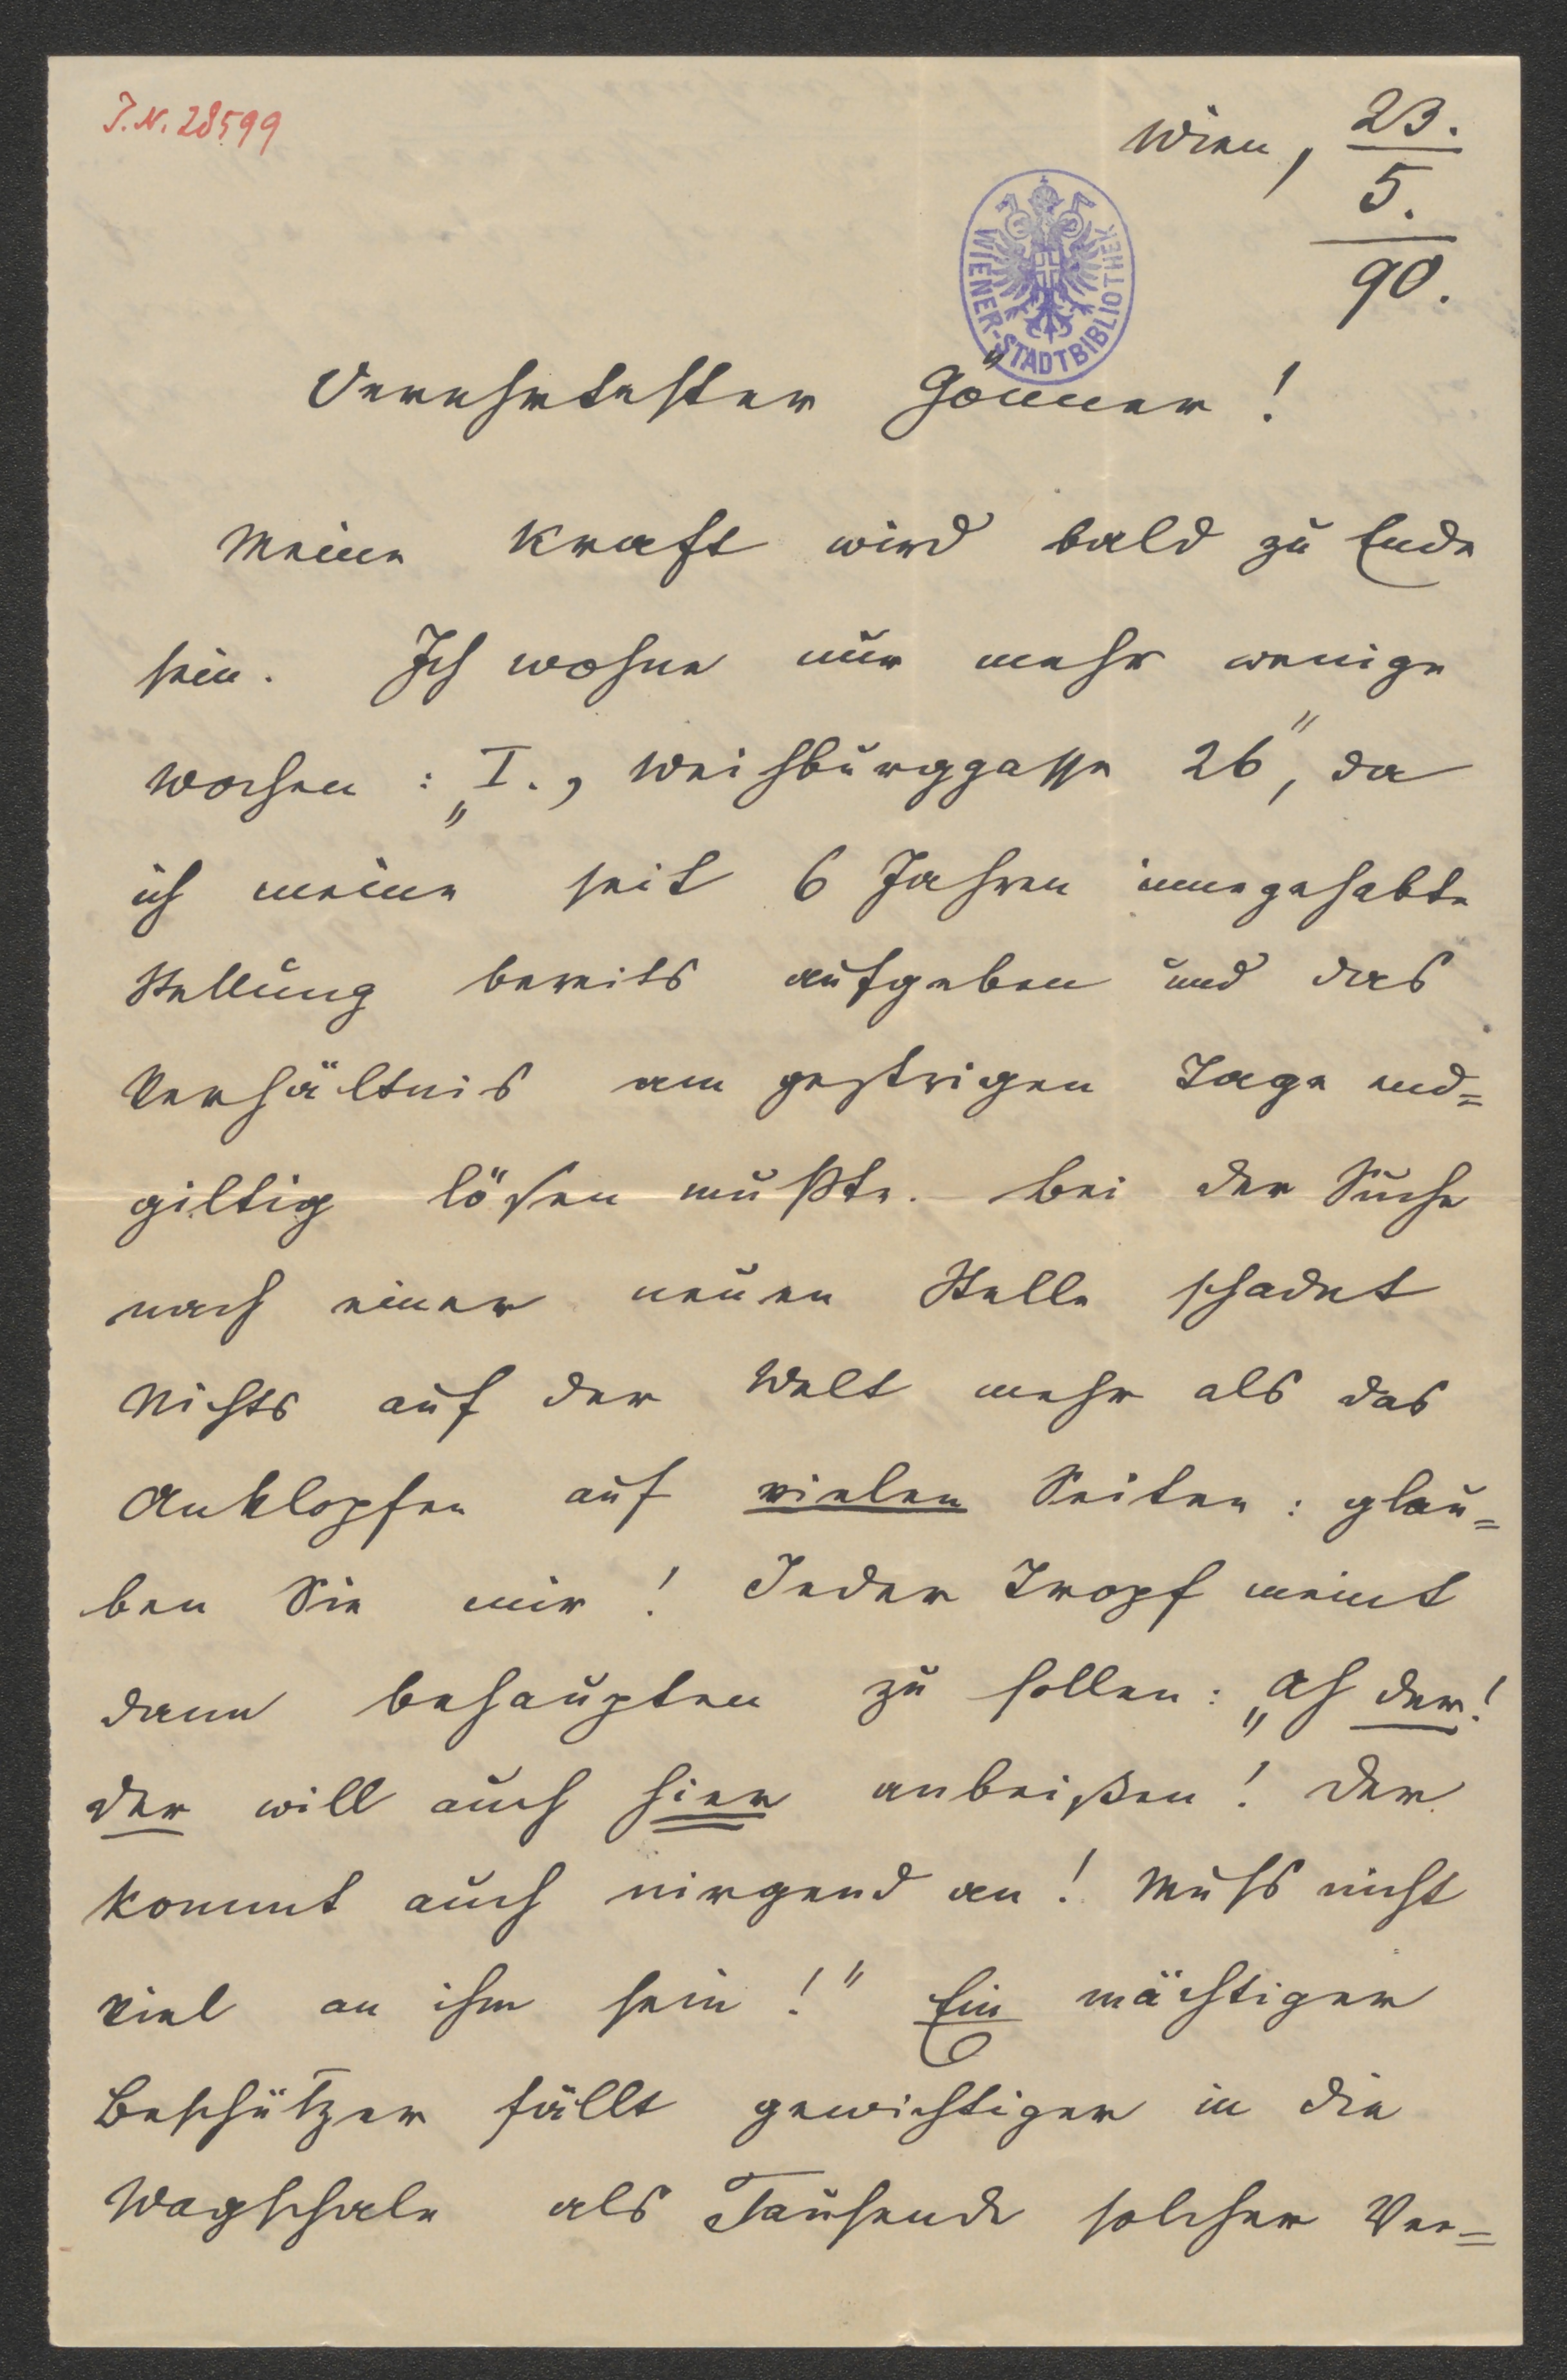 J.N. 28599
Wien, 23.
5.
90.
WIENER-STADTBIBLIOTHEK
Verehrtester Gönner!
Meine Kraft wird bald zu Ende
sein. Ich wohne nur mehr wenige
Wochen: „I., Weihburggasse 26“, da
ich meine seit 6 Jahren innegehabte
Stellung bereits aufgeben und das
Verhältnis am gestrigen Tage end=
giltig lösen mußte. Bei der Suche
nach einer neuen Stelle schadet
Nichts auf der Welt mehr als das
Anklopfen auf vielen Seiten: glau=
ben Sie mir! Jeder Tropf meint
dann behaupten zu sollen: „Ah der!
der will auch hier anbeißen! Der
kommt auch nirgend an! Muss nicht
viel an ihm sein!“ Ein mächtiger
Beschützer fällt gewichtiger in die
Wagschale als Tausende solcher Ver=